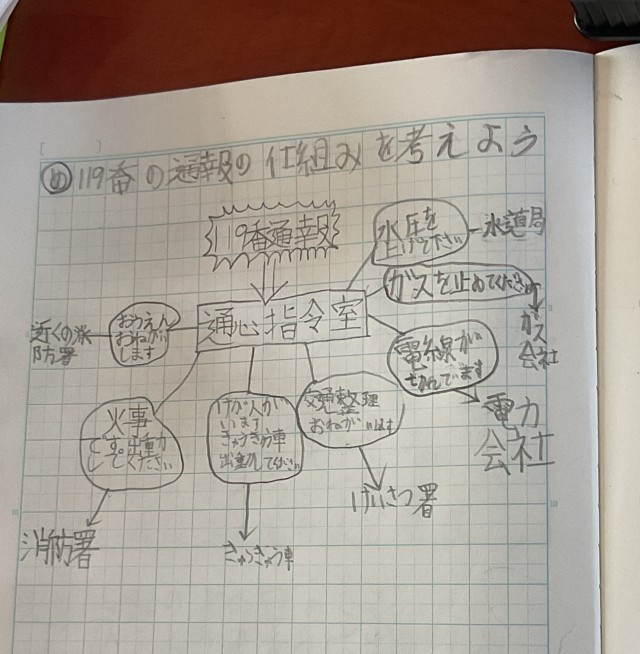 め 119番の通報の仕組みを考えよう
119番通報
水圧を
上げて下さい
水道局
ガスを止めてください
ガス
会社
通心指令室
おうえん
おねがい
します
近くの消
防署
電線が
せんでます
電力
会社
火事
です。出動
してください
消防署
けが人が
います
きゅうきゅう車
出動してください
きゅうきゅう車
交通整理
おねがいします
けいさつ署